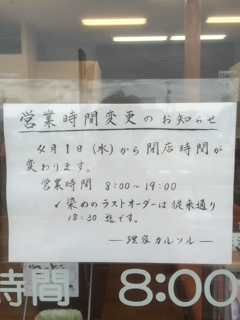 営業時間変更のお知らせ
4月1日(水)から閉店時間が
変わります。
営業時間 8:00~19:00
✓染めのラストオーダーは従来通り
18:30迄です。
―理容カルソル―
時間 8:00